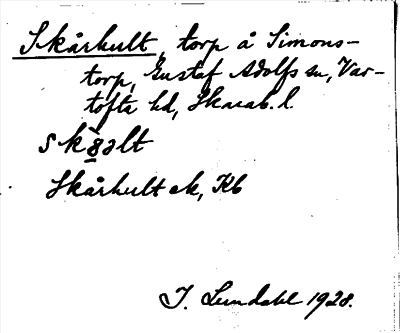 Skårhult, torp å Simons-
torp, Gustaf Adolfs sn, Var-
tofta hd, Skarab. l.
Skårhult ek, Kb
I. Lundahl 1928.